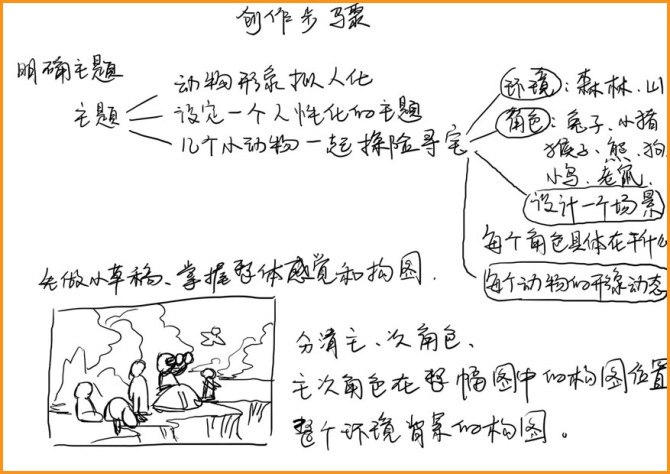 创作步骤
明确主题
主题
动物形象拟人化
设定一个人性化的主题
几个小动物一起探险寻宝
环境：森林、山
角色：兔子、小猪
猴子、熊、狗
小鸟、老鼠、
设计一个场景
每个角色具体在干什么
每个动物的形象动态
先做小草稿、掌握整体感觉和构图．
分清主、次角色、
主次角色在整幅图中的构图位置
整个环境背景的构图。